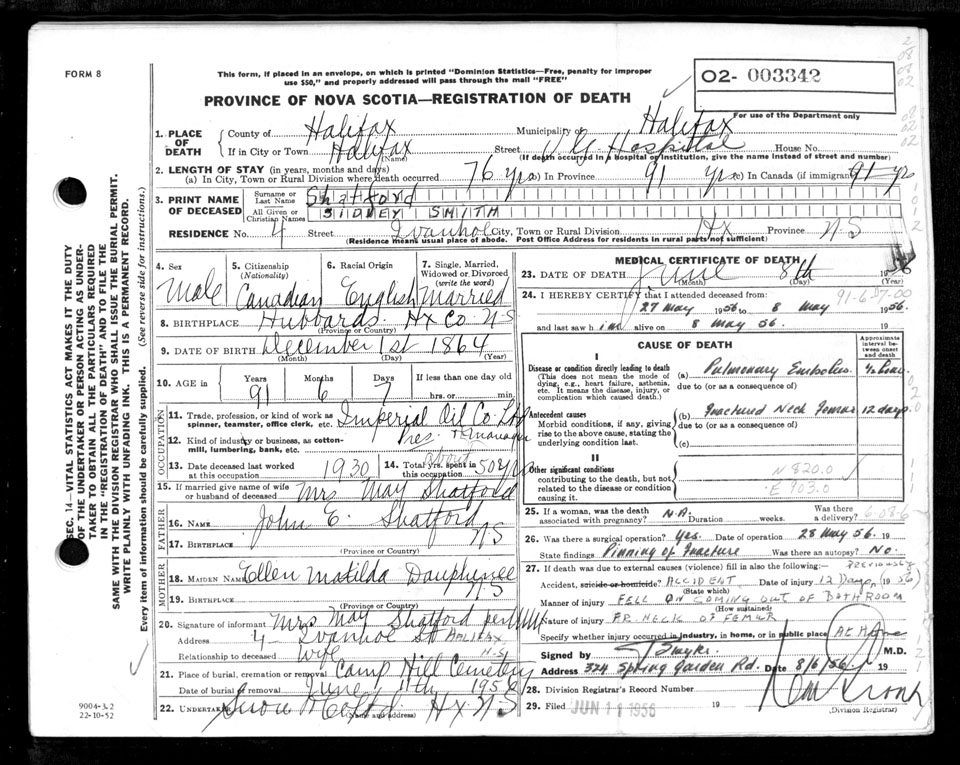 FORM 8
This form, if placed in an envelope, on which is printed "Dominion Statistics—Free, penalty for improper
use $50," and properly addressed will pass through the mail "FREE"
PROVINCE OF NOVA SCOTIA—REGISTRATION OF DEATH
O2- 003342
For use of the Department only
1. PLACE OF DEATH
County of Halifax Municipality of Halifax
If in City or Town Halifax (Name) Street V.G. Hospital House No.
(If death occurred in a hospital or institution, give the name instead of street and number)
2. LENGTH OF STAY (in years, months and days)
(a) In City, Town or Rural Division where death occurred 76 yrs (b) In Province 91 yrs (c) In Canada (if immigrant) 91 yrs
3. PRINT NAME OF DECEASED
Surname or Last Name Shatford
All Given or Christian Names SIDNEY SMITH
RESIDENCE No. 4 Street Ivanhoe City, Town or Rural Division Hx Province NS
(Residence means usual place of abode. Post Office Address for residents in rural parts not sufficient)
4. Sex Male
5. Citizenship (Nationality) Canadian
6. Racial Origin English
7. Single, Married, Widowed or Divorced (write the word) Married
8. BIRTHPLACE Hubbards Hx Co NS
(Province or Country)
9. DATE OF BIRTH December 1st 1864
(Month) (Day) (Year)
10. AGE in Years 91 Months 6 Days 7 If less than one day old hrs. or min.
OCCUPATION
11. Trade, profession, or kind of work as spinner, teamster, office clerk, etc. Imperial Oil Co Ltd
12. Kind of industry or business, as cotton-mill, lumbering, bank, etc. Pres. & Manager
13. Date deceased last worked at this occupation 1930
14. Total yrs. spent in this occupation about 50 yrs
15. If married give name of wife or husband of deceased Mrs May Shatford
FATHER
16. NAME John E. Shatford
17. BIRTHPLACE NS
(Province or Country)
MOTHER
18. MAIDEN NAME Ellen Matilda Dauphinee
19. BIRTHPLACE NS
(Province or Country)
20. Signature of informant Mrs May Shatford per
Address 4 Ivanhoe St HALIFAX
Relationship to deceased Wife N.S.
21. Place of burial, cremation or removal Camp Hill Cemetery
Date of burial or removal June 11th 1956
22. UNDERTAKER Snow & Co Ltd Hx NS
(Name and address)
MEDICAL CERTIFICATE OF DEATH
23. DATE OF DEATH June 8th 1956
(Month) (Day) (Year)
91-6-87-00
24. I HEREBY CERTIFY that I attended deceased from
27 May 1956 to 8 May 1956.
and last saw h im alive on 8 May 56. 19
CAUSE OF DEATH
Approximate interval between onset and death
I
Disease or condition directly leading to death
(This does not mean the mode of dying, e.g., heart failure, asthenia, etc. It means the disease, injury, or complication which caused death.)
(a) Pulmonary Embolus ½ hour
due to (or as a consequence of)
Antecedent causes
Morbid conditions, if any, giving rise to the above cause, stating the underlying condition last.
(b) Fractured Neck Femur 12 days
due to (or as a consequence of)
(c)
II
Other significant conditions contributing to the death, but not related to the disease or condition causing it.
N 820.0
E 903.0
25. If a woman, was the death associated with pregnancy? N.A. Duration weeks. Was there a delivery?
6-08-6
26. Was there a surgical operation? Yes. Date of operation 28 May 56. 19
State findings Pinning of Fracture Was there an autopsy? No.
27. If death was due to external causes (violence) fill in also the following:
PREVIOUSLY
Accident, suicide or homicide? ACCIDENT Date of injury 12 Days, 1956
(State which)
Manner of injury FELL ON COMING OUT OF BATHROOM
(How sustained)
Nature of injury FR. NECK OF FEMUR
Specify whether injury occurred in industry, in home, or in public place At Home
Signed by M.D.
Address 324 Spring Garden Rd. Date 8/6/56 19
28. Division Registrar's Record Number
29. Filed JUN 11 1956 19
(Division Registrar)
9004-3.2
22-10-52
SEC. 14—VITAL STATISTICS ACT MAKES IT THE DUTY
OF THE UNDERTAKER OR PERSON ACTING AS UNDER-
TAKER TO OBTAIN ALL THE PARTICULARS REQUIRED
IN THE "REGISTRATION OF DEATH" AND TO FILE THE
SAME WITH THE DIVISION REGISTRAR WHO SHALL ISSUE THE BURIAL PERMIT.
WRITE PLAINLY WITH UNFADING INK. THIS IS A PERMANENT RECORD.
Every item of information should be carefully supplied. (See reverse side for instructions.)